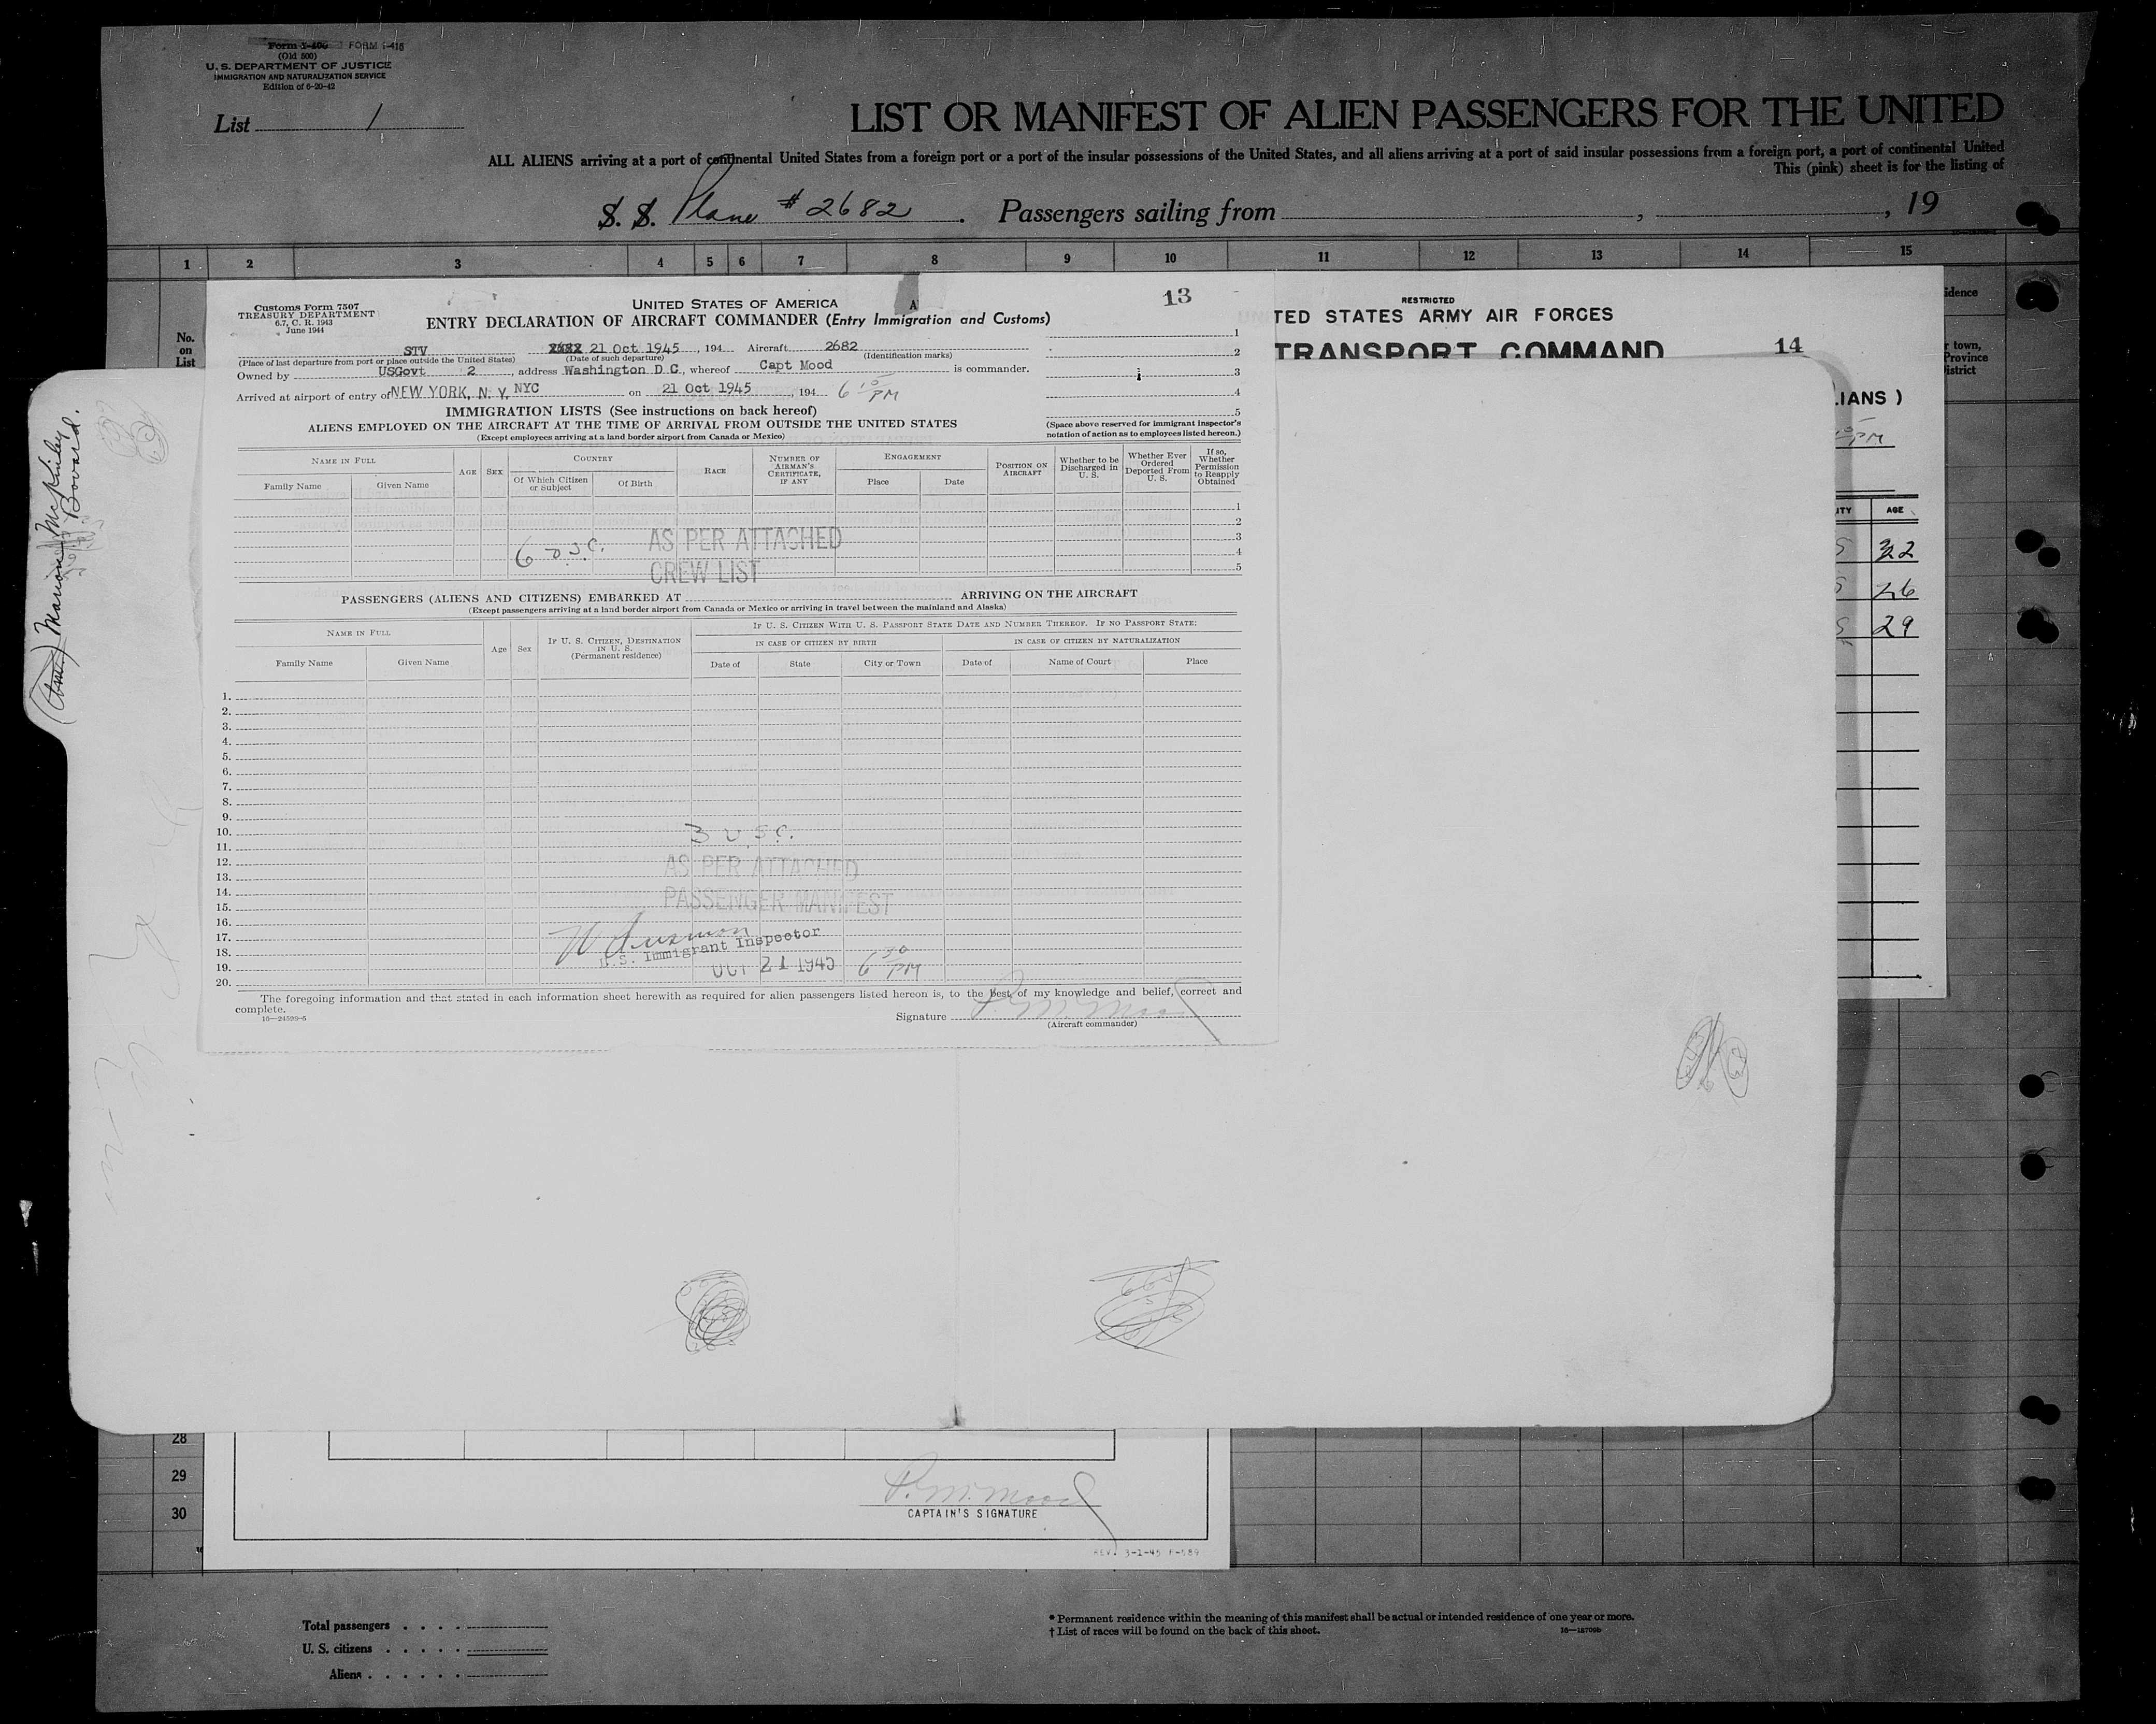 Form I-400 FORM I-415
(Old 500)
U. S. DEPARTMENT OF JUSTICE
IMMIGRATION AND NATURALIZATION SERVICE
Edition of 6-20-42
List 1
LIST OR MANIFEST OF ALIEN PASSENGERS FOR THE UNITED
ALL ALIENS arriving at a port of continental United States from a foreign port or a port of the insular possessions of the United States, and all aliens arriving at a port of said insular possessions from a foreign port, a port of continental United
This (pink) sheet is for the listing of
S. S. Plane # 2682. Passengers sailing from , , 19
1 2 3 4 5 6 7 8 9 10 11 12 13 14 15
No. on List
idence
r town,
Province
istrict
Customs Form 7507
TREASURY DEPARTMENT
6.7, C. R. 1943
June 1944
UNITED STATES OF AMERICA
13
ENTRY DECLARATION OF AIRCRAFT COMMANDER (Entry Immigration and Customs)
STV 21 Oct 1945, 194 Aircraft 2682
(Place of last departure from port or place outside the United States) (Date of such departure) (Identification marks)
Owned by USGovt 2, address Washington D C, whereof Capt Mood is commander.
Arrived at airport of entry of NEW YORK, N. Y. NYC on 21 Oct 1945, 194 6 10 PM
1
2
3
4
5
IMMIGRATION LISTS (See instructions on back hereof)
ALIENS EMPLOYED ON THE AIRCRAFT AT THE TIME OF ARRIVAL FROM OUTSIDE THE UNITED STATES
(Except employees arriving at a land border airport from Canada or Mexico)
(Space above reserved for immigrant inspector's notation of action as to employees listed hereon.)
NAME IN FULL
Family Name Given Name
AGE SEX
COUNTRY
Of Which Citizen or Subject Of Birth
RACE
NUMBER OF AIRMAN'S CERTIFICATE, IF ANY
ENGAGEMENT
Place Date
POSITION ON AIRCRAFT
Whether to be Discharged in U. S.
Whether Ever Ordered Deported From U. S.
If so, Whether Permission to Reapply Obtained
1
2
3
4
5
6 U.S.C. AS PER ATTACHED
CREW LIST
PASSENGERS (ALIENS AND CITIZENS) EMBARKED AT ARRIVING ON THE AIRCRAFT
(Except passengers arriving at a land border airport from Canada or Mexico or arriving in travel between the mainland and Alaska)
NAME IN FULL
Family Name Given Name
Age Sex
IF U. S. CITIZEN, DESTINATION IN U. S.
(Permanent residence)
IF U. S. CITIZEN WITH U. S. PASSPORT STATE DATE AND NUMBER THEREOF. IF NO PASSPORT STATE:
IN CASE OF CITIZEN BY BIRTH IN CASE OF CITIZEN BY NATURALIZATION
Date of State City or Town Date of Name of Court Place
1.
2.
3.
4.
5.
6.
7.
8.
9.
10.
11.
12.
13.
14.
15.
16.
17.
18.
19.
20.
3 U S C.
AS PER ATTACHED
PASSENGER MANIFEST
U.S. Immigrant Inspector
OCT 21 1945 6 30 PM
The foregoing information and that stated in each information sheet herewith as required for alien passengers listed hereon is, to the best of my knowledge and belief, correct and
complete.
16—24599-5
Signature P. M. Mood
(Aircraft commander)
RESTRICTED
TED STATES ARMY AIR FORCES
TRANSPORT COMMAND 14
LIANS )
PM
ITY AGE
S 32
S 26
S 29
Marion McKinley
Bovard.
28
29
30
P. M. Mood
CAPTAIN'S SIGNATURE
REV. 3-1-45 F-589
Total passengers
U. S. citizens
Aliens
* Permanent residence within the meaning of this manifest shall be actual or intended residence of one year or more.
† List of races will be found on the back of this sheet.
16—18709b